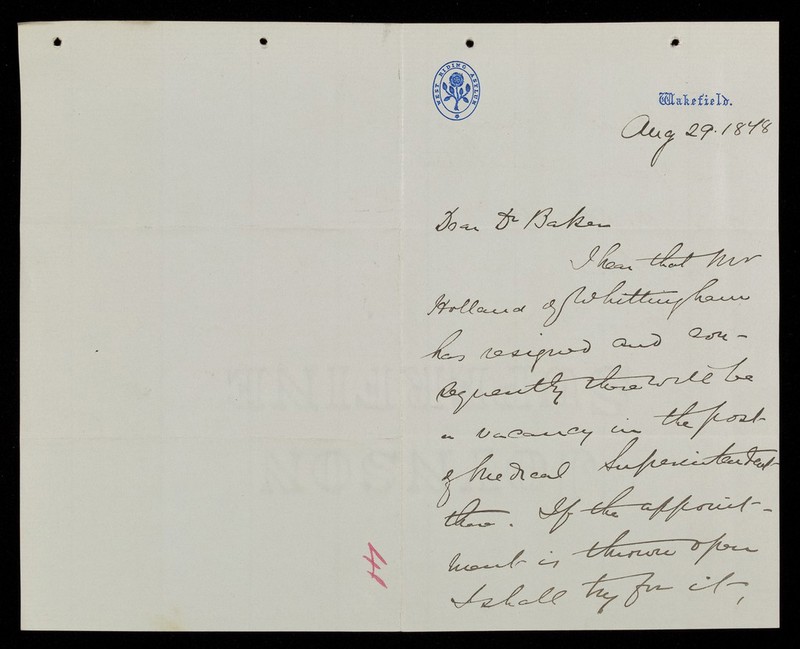 WEST RIDING ASYLUM
Wakefield.
Aug 29. 1878
Dear Dr Baker
I hear that Mr
Holland of Whittingham
has resigned and con-
sequently there will be
a vacancy in the post
of Medical Superintendent
there. If the appoint-
ment is thrown open
I shall try for it,
H